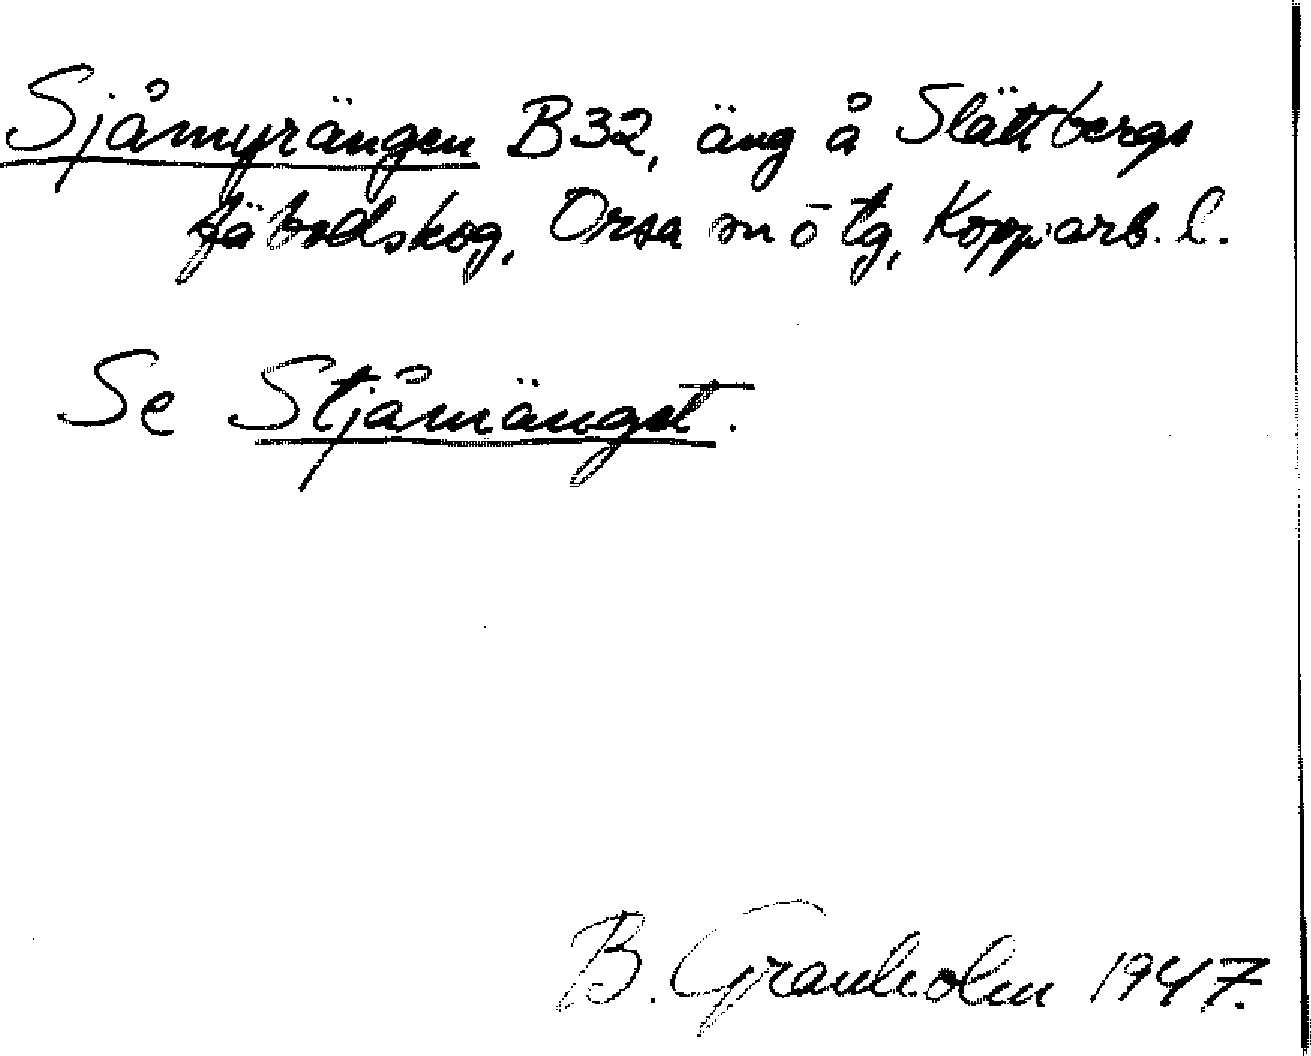 Sjåmyrängen B32, äng å Slättbergs
fäbodskog, Orsa sn o tg, Kopparb. l.
Se Stjåmänget.
B. Granholm 1947.